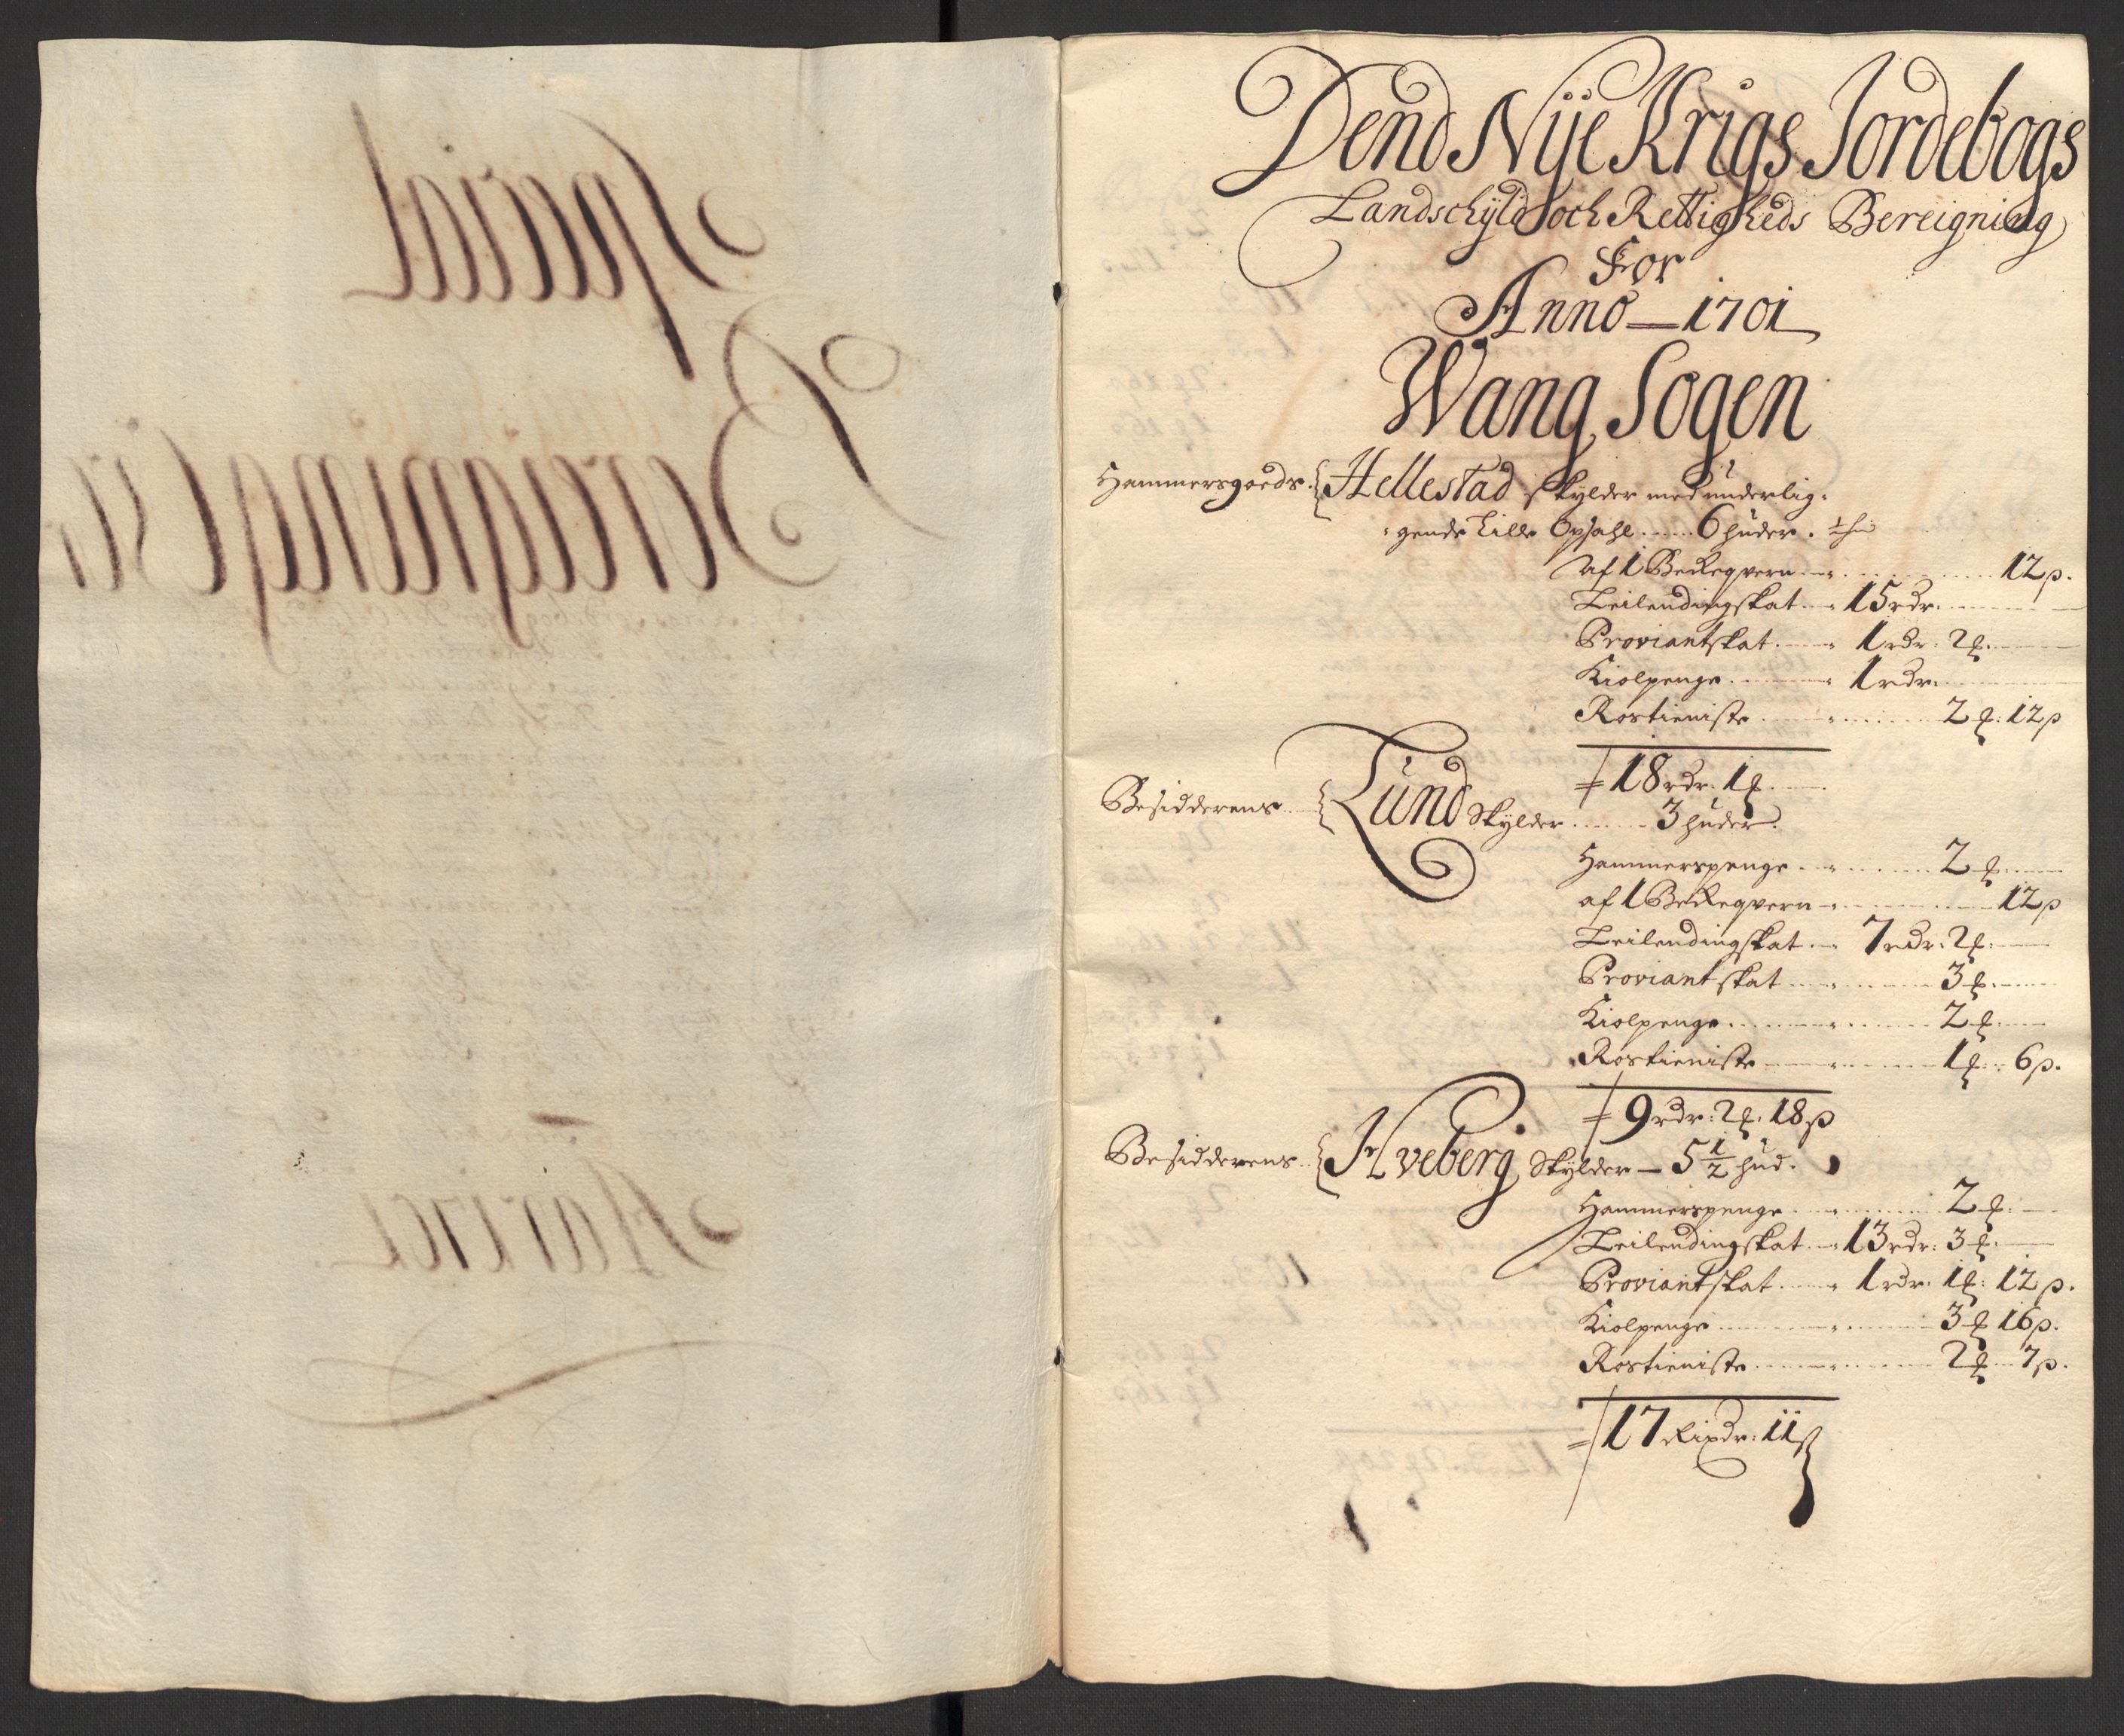 Dend Nÿe Krigs Jordebogs
Landschÿld och Rettigheds Bereigning
For
Anno 1701
Wang Sogen
Hammersgoeds. Hellestad skÿlder med underlig:
gende Lille Opsahl ..... 6 huder.
Af 1 Beckeqvern ..... 12 β.
Leilendingskat ..... 15 rdr.
Proviantskat ..... 1 rdr. 2 ƶ.
Kiolpenge ..... 1 rdr.
Rostieniste ..... 2 ƶ: 12 β
18 rdr. 1 ƶ.
Besidderens Lund Skÿlder ..... 3 huder.
Hammerspenge ..... 2 ƶ.
af 1 Beckeqvern ..... 12 β
Leilendingskat ..... 7 rdr. 2 ƶ.
Proviantskat ..... 3 ƶ.
Kiolpenge ..... 2 ƶ.
Rostieniste ..... 1 ƶ: 6 β.
9 rdr: 2 ƶ. 18 β
Besidderens Hveberg Skÿlder – 5 1/2 hud.
Hammerspenge ..... 2 ƶ.
Leilendingskat ..... 13 rdr: 3 ƶ.
Proviantskat ..... 1 rdr. 1 ƶ: 12 β.
Kiolpenge ..... 3 ƶ 16 β.
Rostieniste ..... 2 ƶ 7 β.
17 Rixdr: 11 β